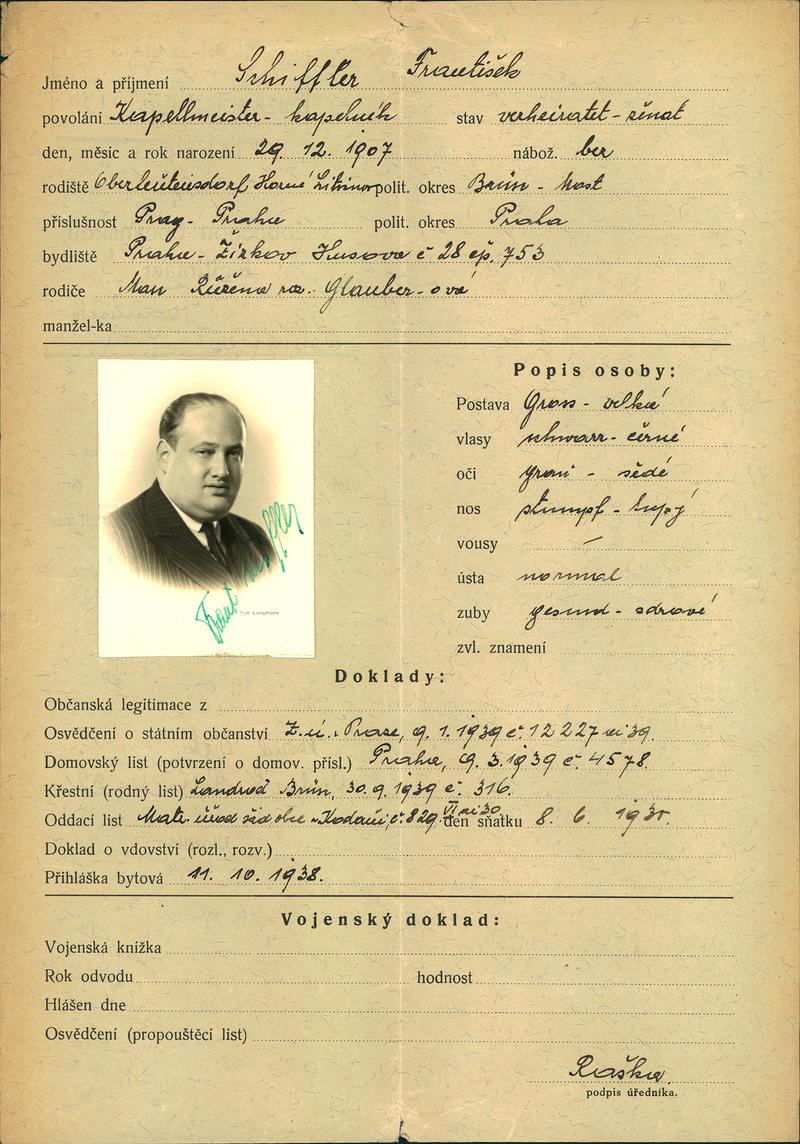 Jméno a příjmení Schiffler František
povolání Kapellmeister - kapelník stav verheiratet - ženat
den, měsíc a rok narození 29. 12. 1907 nábož. ber
rodiště Oberleutensdorf Horní Litvínov polit. okres Brüx - Most
příslušnost Prag - Praha polit. okres Praha
bydliště Praha - Žižkov Husova č 28 čp. 753
rodiče Max Růžena roz. Glauber - ová
manžel-ka
Popis osoby:
Postava Gross - velká
vlasy schwarz - černé
oči grau - šedé
nos stumpf - tupý
vousy —
ústa normal
zuby gesund - zdravé
zvl. znamení
Fot. Langhans
Doklady:
Občanská legitimace z
Osvědčení o státním občanství Z. ú. v Praze, 9. 1. 1939 č. 12 227 39.
Domovský list (potvrzení o domov. přísl.) Praha, 9. 3. 1939 č. 4578.
Křestní (rodný list) Landrat Brüx, 30. 9. 1939 č. 316.
Oddací list č. 829. VI den sňatku 8. 6. 1930.
Doklad o vdovství (rozl., rozv.)
Přihláška bytová 11. 10. 1938.
Vojenský doklad:
Vojenská knížka
Rok odvodu hodnost
Hlášen dne
Osvědčení (propouštěcí list)
Raška
podpis úředníka.